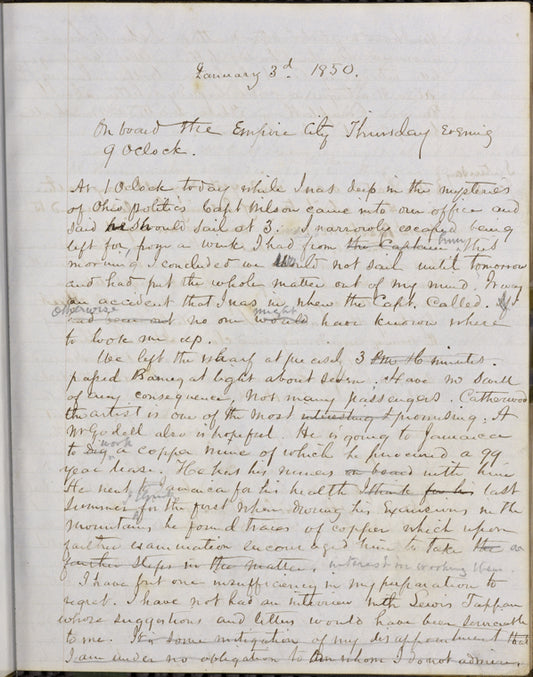 January 3d. 1850.
On board the Empire City Thursday Evening
9 Oclock.
At 1 Oclock today while I was deep in the mysteries
of Ohio politics Capt Wilson came into our office and
said he should sail at 3. I narrowly escaped being
left for, from a work I had from the Captain him this
morning, I concluded we would not sail until tomorrow
and had put the whole matter out of my mind. It was
an accident that I was in when the Capt. called. If
otherwise might
had been out no one would have known where
to look me up.
We left the wharf at precisely 3 minutes.
passed Barnegat light about seven. Have no swell
of any consequence. Not many passengers. Catherwood
the artist is one of the most interesting & promising. A
Mr Godell also is hopeful. He is going to Jamaica
work
to a copper mine of which he procured a 99
year lease. He has his miners on board with him
He went to Jamaica for his health I think for his last
Summer for the first when during his excursions in the
mountains he found traces of copper which upon
further examination encouraged him to take the an
further steps in the matter. interest in working them.
I have but one insufficiency in my preparation to
regret. I have not had an interview with Lewis Tappan
whose suggestions and letters would have been serviceable
to me. It is some mitigation of my disappointment that
I am under no obligation to him whom I do not admire